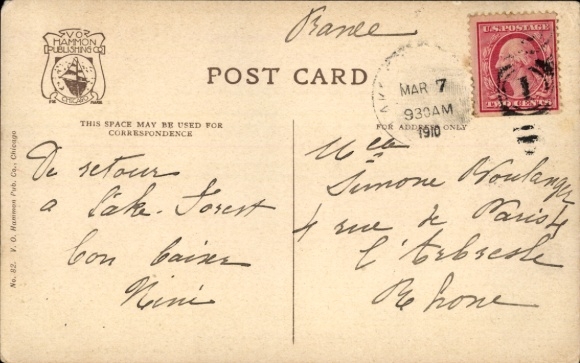 France
V O
HAMMON
PUBLISHING CO.
CHICAGO
TRADE MARK
POST CARD
U.S. POSTAGE
TWO CENTS
LAKE
MAR 7
930AM
1910
1
THIS SPACE MAY BE USED FOR
CORRESPONDENCE
FOR ADDRESS ONLY
De retour
a Lake-Forest
bon baiser
Nini
Mlle
Simone Boulanger
4 rue de Paris 4
l'Arbresle
Rhone
No. 82. V. O. Hammon Pub. Co., Chicago